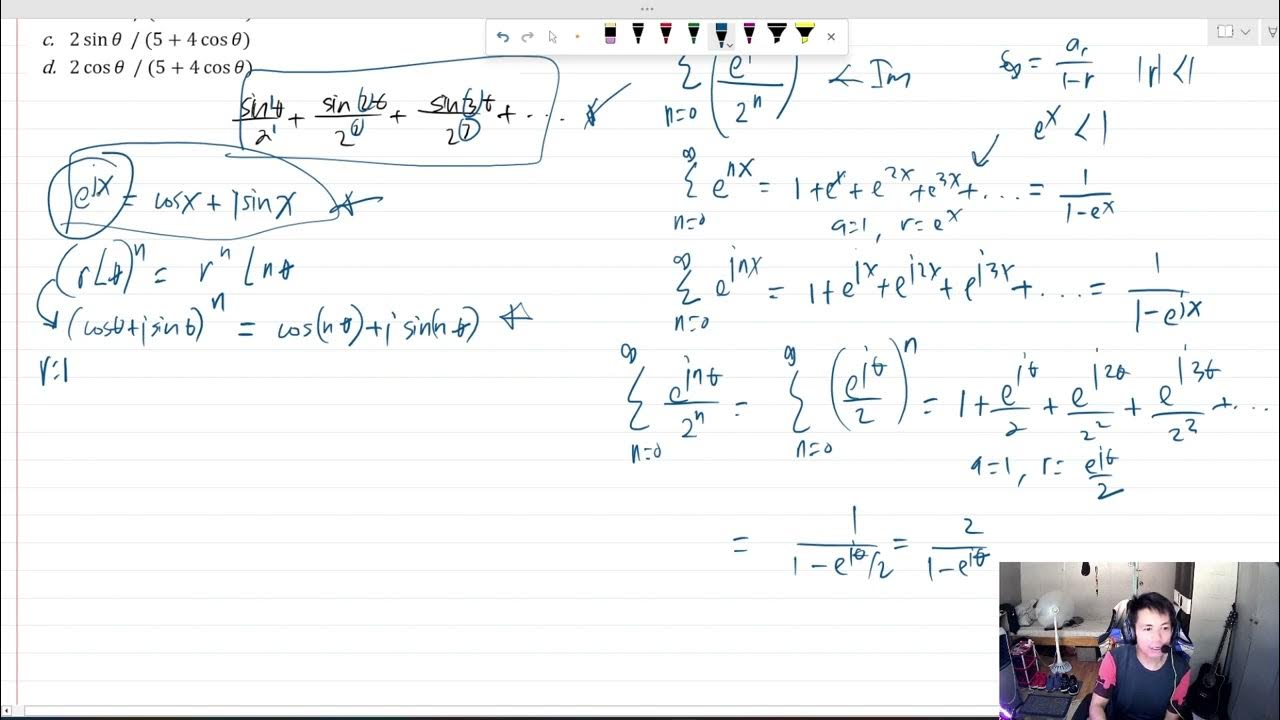 c. 2 sin θ / (5 + 4 cos θ)
d. 2 cos θ / (5 + 4 cos θ)
sinθ/2¹ + sin(2)θ/2² + sin(3)θ/2³ + ...
e^{jx} = cosx + jsinx
(r∠θ)^n = r^n ∠nθ
(cosθ+jsinθ)^n = cos(nθ)+j sin(nθ)
r=1
Σ n=0 (e^j/2^n) ← Im
S∞ = a₁/(1-r) |r|<1
e^x < 1
Σ n=0 ∞ e^{nx} = 1+e^x+e^{2x}+e^{3x}+... = 1/(1-e^x)
a=1, r=e^x
Σ n=0 ∞ e^{jnx} = 1+e^{jx}+e^{j2x}+e^{j3x}+... = 1/(1-e^{jx})
Σ n=0 ∞ e^{jnθ}/2^n = Σ n=0 ∞ (e^{jθ}/2)^n = 1+e^{jθ}/2+e^{j2θ}/2²+e^{j3θ}/2³+...
a=1, r=e^{jθ}/2
= 1/(1-e^{jθ}/2) = 2/(1-e^{jθ})